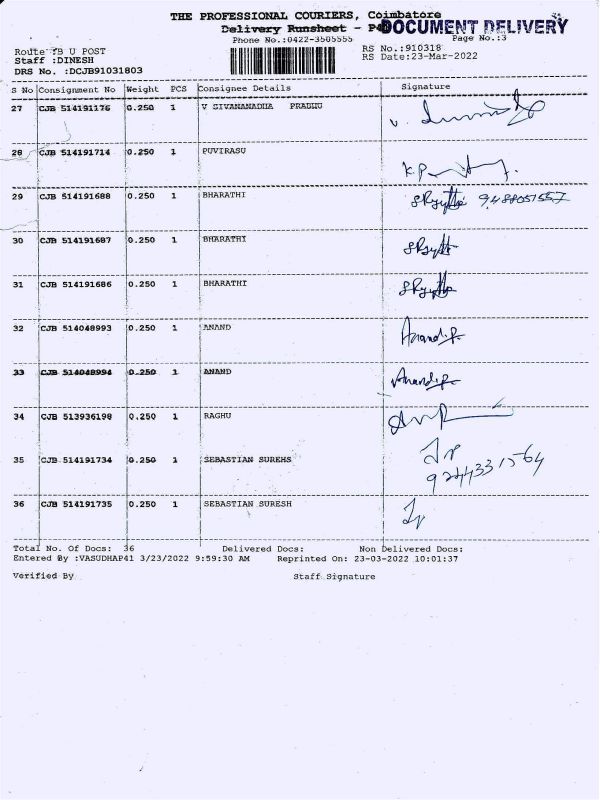 THE PROFESSIONAL COURIERS, Coimbatore
Delivery Runsheet - P4
DOCUMENT DELIVERY
Phone No.:0422-3505555
Page No.:3
Route :B U POST
RS No.:910318
Staff :DINESH
RS Date:23-Mar-2022
DRS No. :DCJB91031803
S No Consignment No Weight PCS Consignee Details Signature
27 CJB 514191176 0.250 1 V SIVANANADHA PRABHU
28 CJB 514191714 0.250 1 PUVIRASU
29 CJB 514191688 0.250 1 BHARATHI
30 CJB 514191687 0.250 1 BHARATHI
31 CJB 514191686 0.250 1 BHARATHI
32 CJB 514048993 0.250 1 ANAND Anand.P.
33 CJB 514048994 0.250 1 ANAND Anand.P.
34 CJB 513936198 0.250 1 RAGHU
35 CJB 514191734 0.250 1 SEBASTIAN SUREHS
36 CJB 514191735 0.250 1 SEBASTIAN SURESH
Total No. Of Docs: 36 Delivered Docs: Non Delivered Docs:
Entered By :VASUDHAP41 3/23/2022 9:59:30 AM Reprinted On: 23-03-2022 10:01:37
Verified By Staff Signature